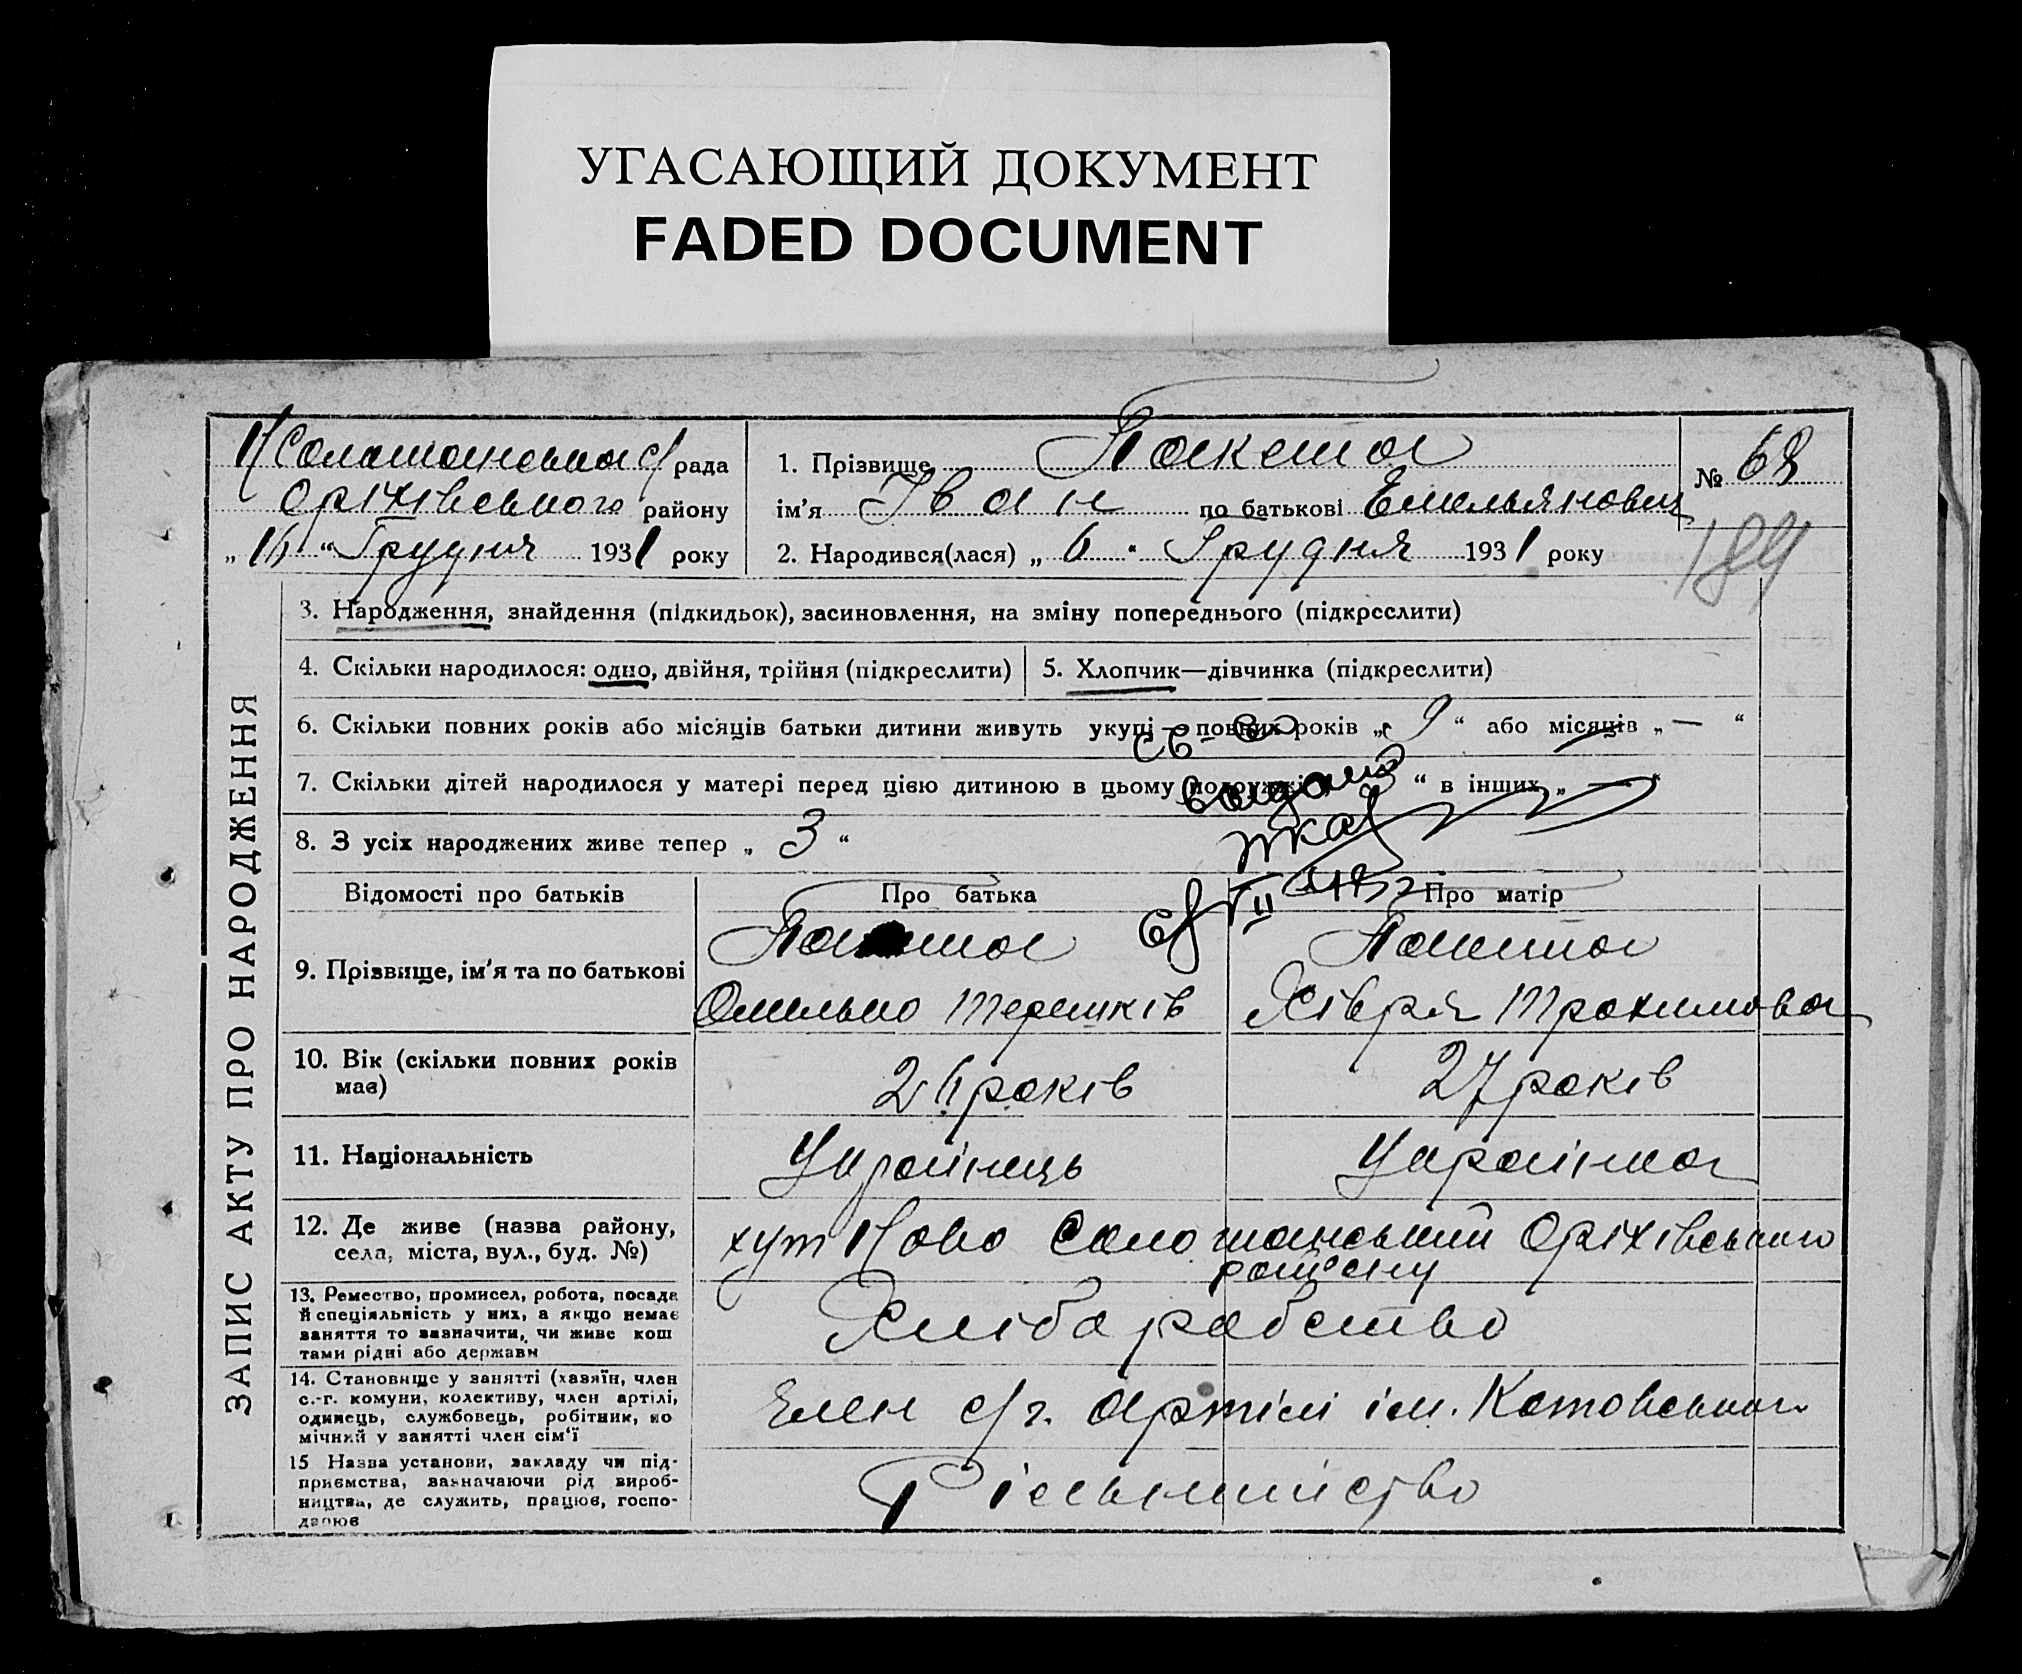 УГАСАЮЩИЙ ДОКУМЕНТ
FADED DOCUMENT
рада
Оріхівського району
„ 16 “ Грудня 1931 року
1. Прізвище Пакета
ім'я Іван по батькові Емельянович
2. Народився(лася) „ 6 “ Грудня 1931 року
№ 68
3. Народження, знайдення (підкидьок), засиновлення, на зміну попереднього (підкреслити)
4. Скільки народилося: одно, двійня, трійня (підкреслити)
5. Хлопчик—дівчинка (підкреслити)
6. Скільки повних років або місяців батьки дитини живуть укупі — повних років „ 9 “ або місяців „ — “
7. Скільки дітей народилося у матері перед цією дитиною в цьому подружжі „ 3 “ в інших „ — “
8. З усіх народжених живе тепер „ 3 “
Відомості про батьків
Про батька
Про матір
9. Прізвище, ім'я та по батькові
Пакета
Омелько Терешків
Пакета
Хівря Трохимова
10. Вік (скільки повних років
має)
26 років
27 років
11. Національність
Українець
Українка
12. Де живе (назва району,
села, міста, вул., буд. №)
хут Ново Солошанський Оріхівського
району
13. Ремество, промисел, робота, посада
й спеціяльність у них, а якщо немає
заняття то зазначити, чи живе кош
тами рідні або держави
Хліборобство
14. Становище у занятті (хазяїн, член
с.-г. комуни, колективу, член артілі,
одинець, службовець, робітник, по
мічний у занятті член сім'ї
Член с/г. Артілі ім. Котовського
15 Назва установи, закладу чи під-
приємства, зазначаючи рід вироб-
ництва, де служить, працює, госпо-
дарює
Рільництво
ЗАПИС АКТУ ПРО НАРОДЖЕННЯ